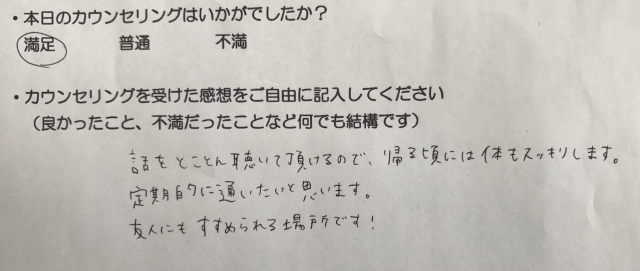 ・本日のカウンセリングはいかがでしたか？
満足 普通 不満
・カウンセリングを受けた感想をご自由に記入してください
（良かったこと、不満だったことなど何でも結構です）
話をとことん聴いて頂けるので、帰る頃には体もスッキリします。
定期的に通いたいと思います。
友人にもすすめられる場所です！